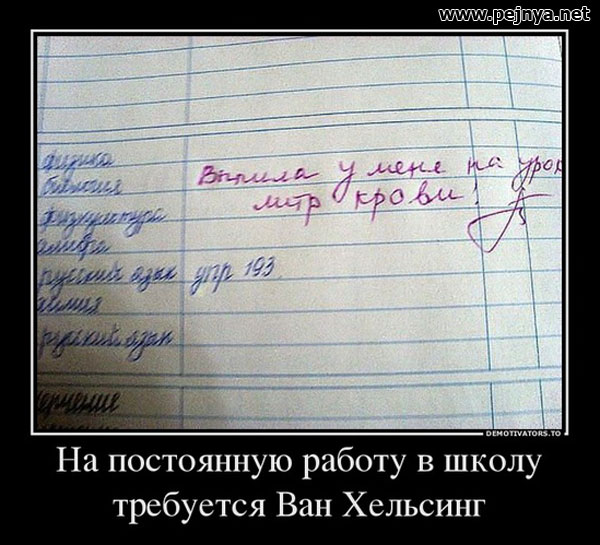 www.pejnya.net
физика
биология
Выпила у меня на урок
литр крови!
физкультура
алгебра
русский язык упр 193.
химия
русский язык
черчение
DEMOTIVATORS.TO
На постоянную работу в школу
требуется Ван Хельсинг